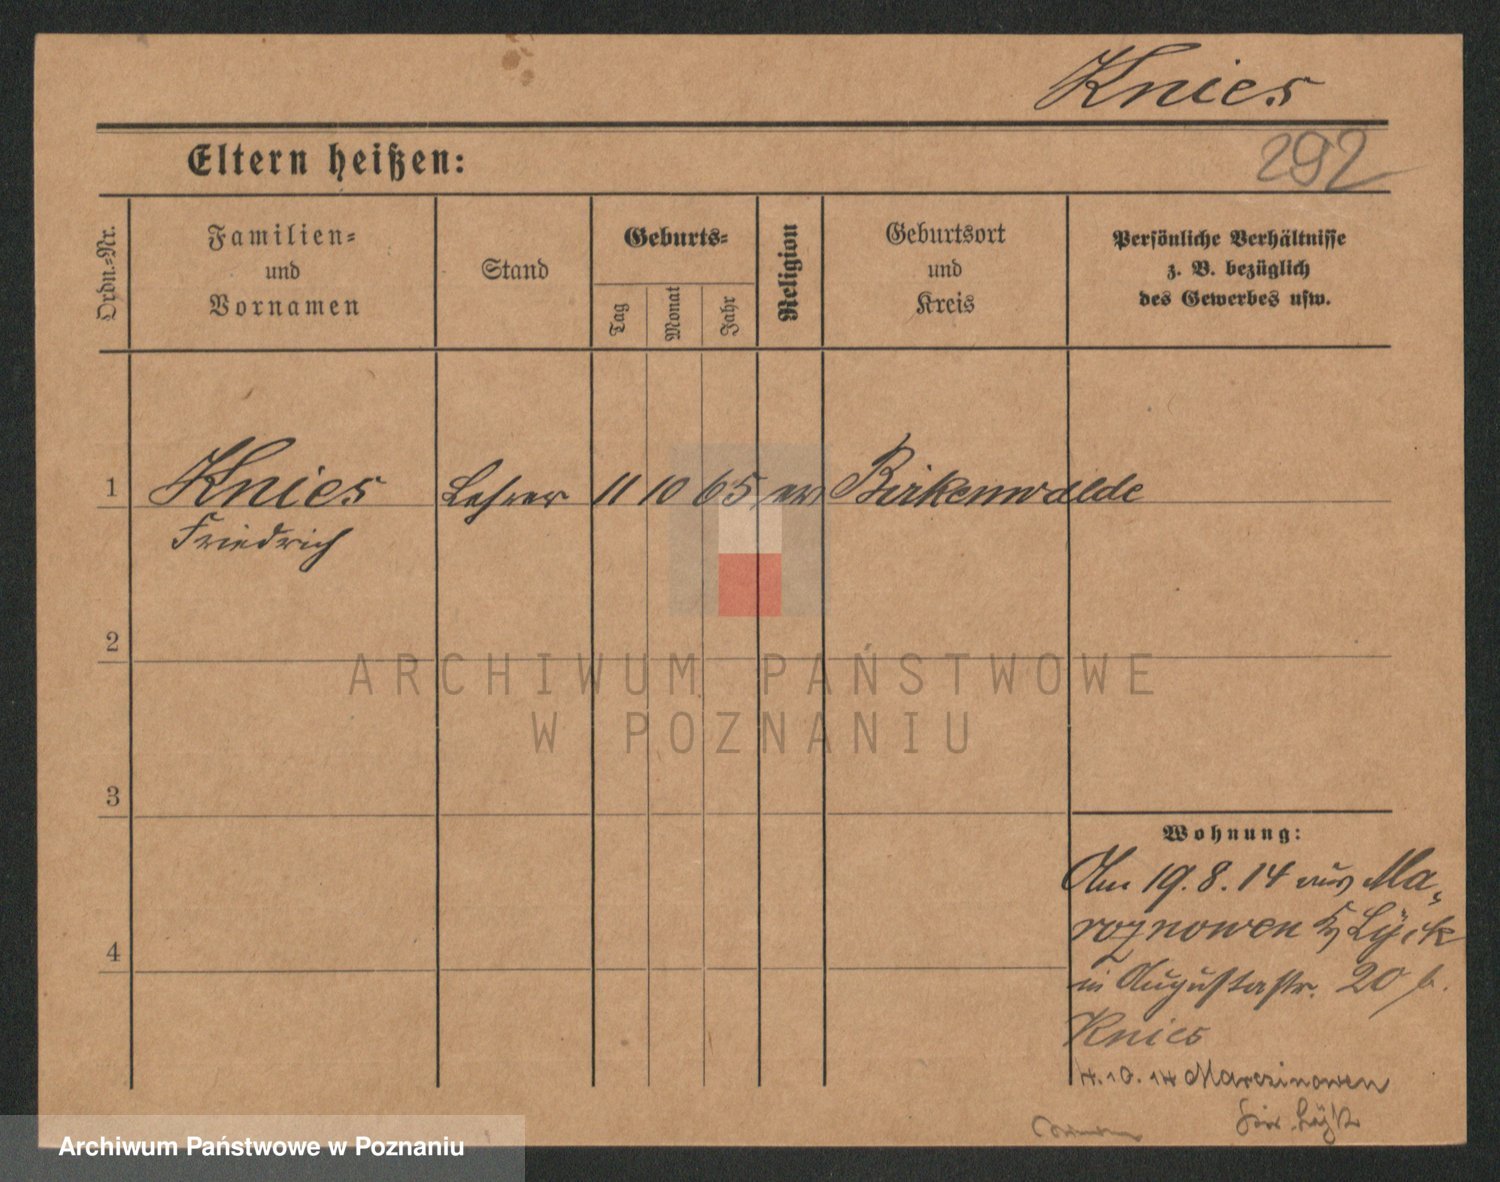 Knies
292
Eltern heißen:
Ordn.-Nr.
Familien-
und
Vornamen
Stand
Geburts-
Tag
Monat
Jahr
Religion
Geburtsort
und
Kreis
Persönliche Verhältnisse
z. B. bezüglich
des Gewerbes usw.
1 Knies Lehrer 11 10 65 ev Birkenwalde
Friedrich
2
3
4
Wohnung:
Am 19.8.14 aus Ma-
roznowen Lyck
in Augustastr. 20 b.
Knies
4.10.14 Marczinowen
Lyk
ARCHIWUM PAŃSTWOWE
W POZNANIU
Archiwum Państwowe w Poznaniu